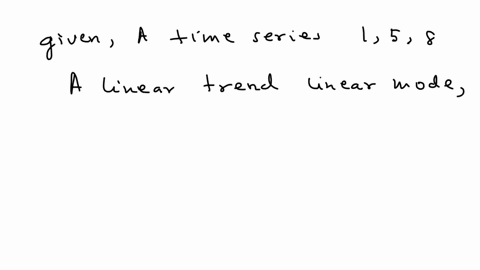 given, A time series 1, 5, 8
A linear trend linear mode,